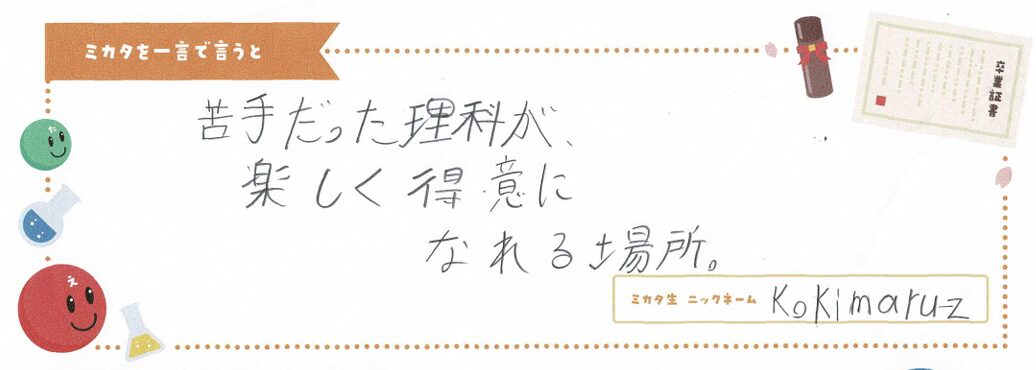 ミカタを一言で言うと
卒業証書
た
苦手だった理科が、
楽しく得意に
なれる場所。
え
ミカタ生 ニックネーム Kokimaru-z